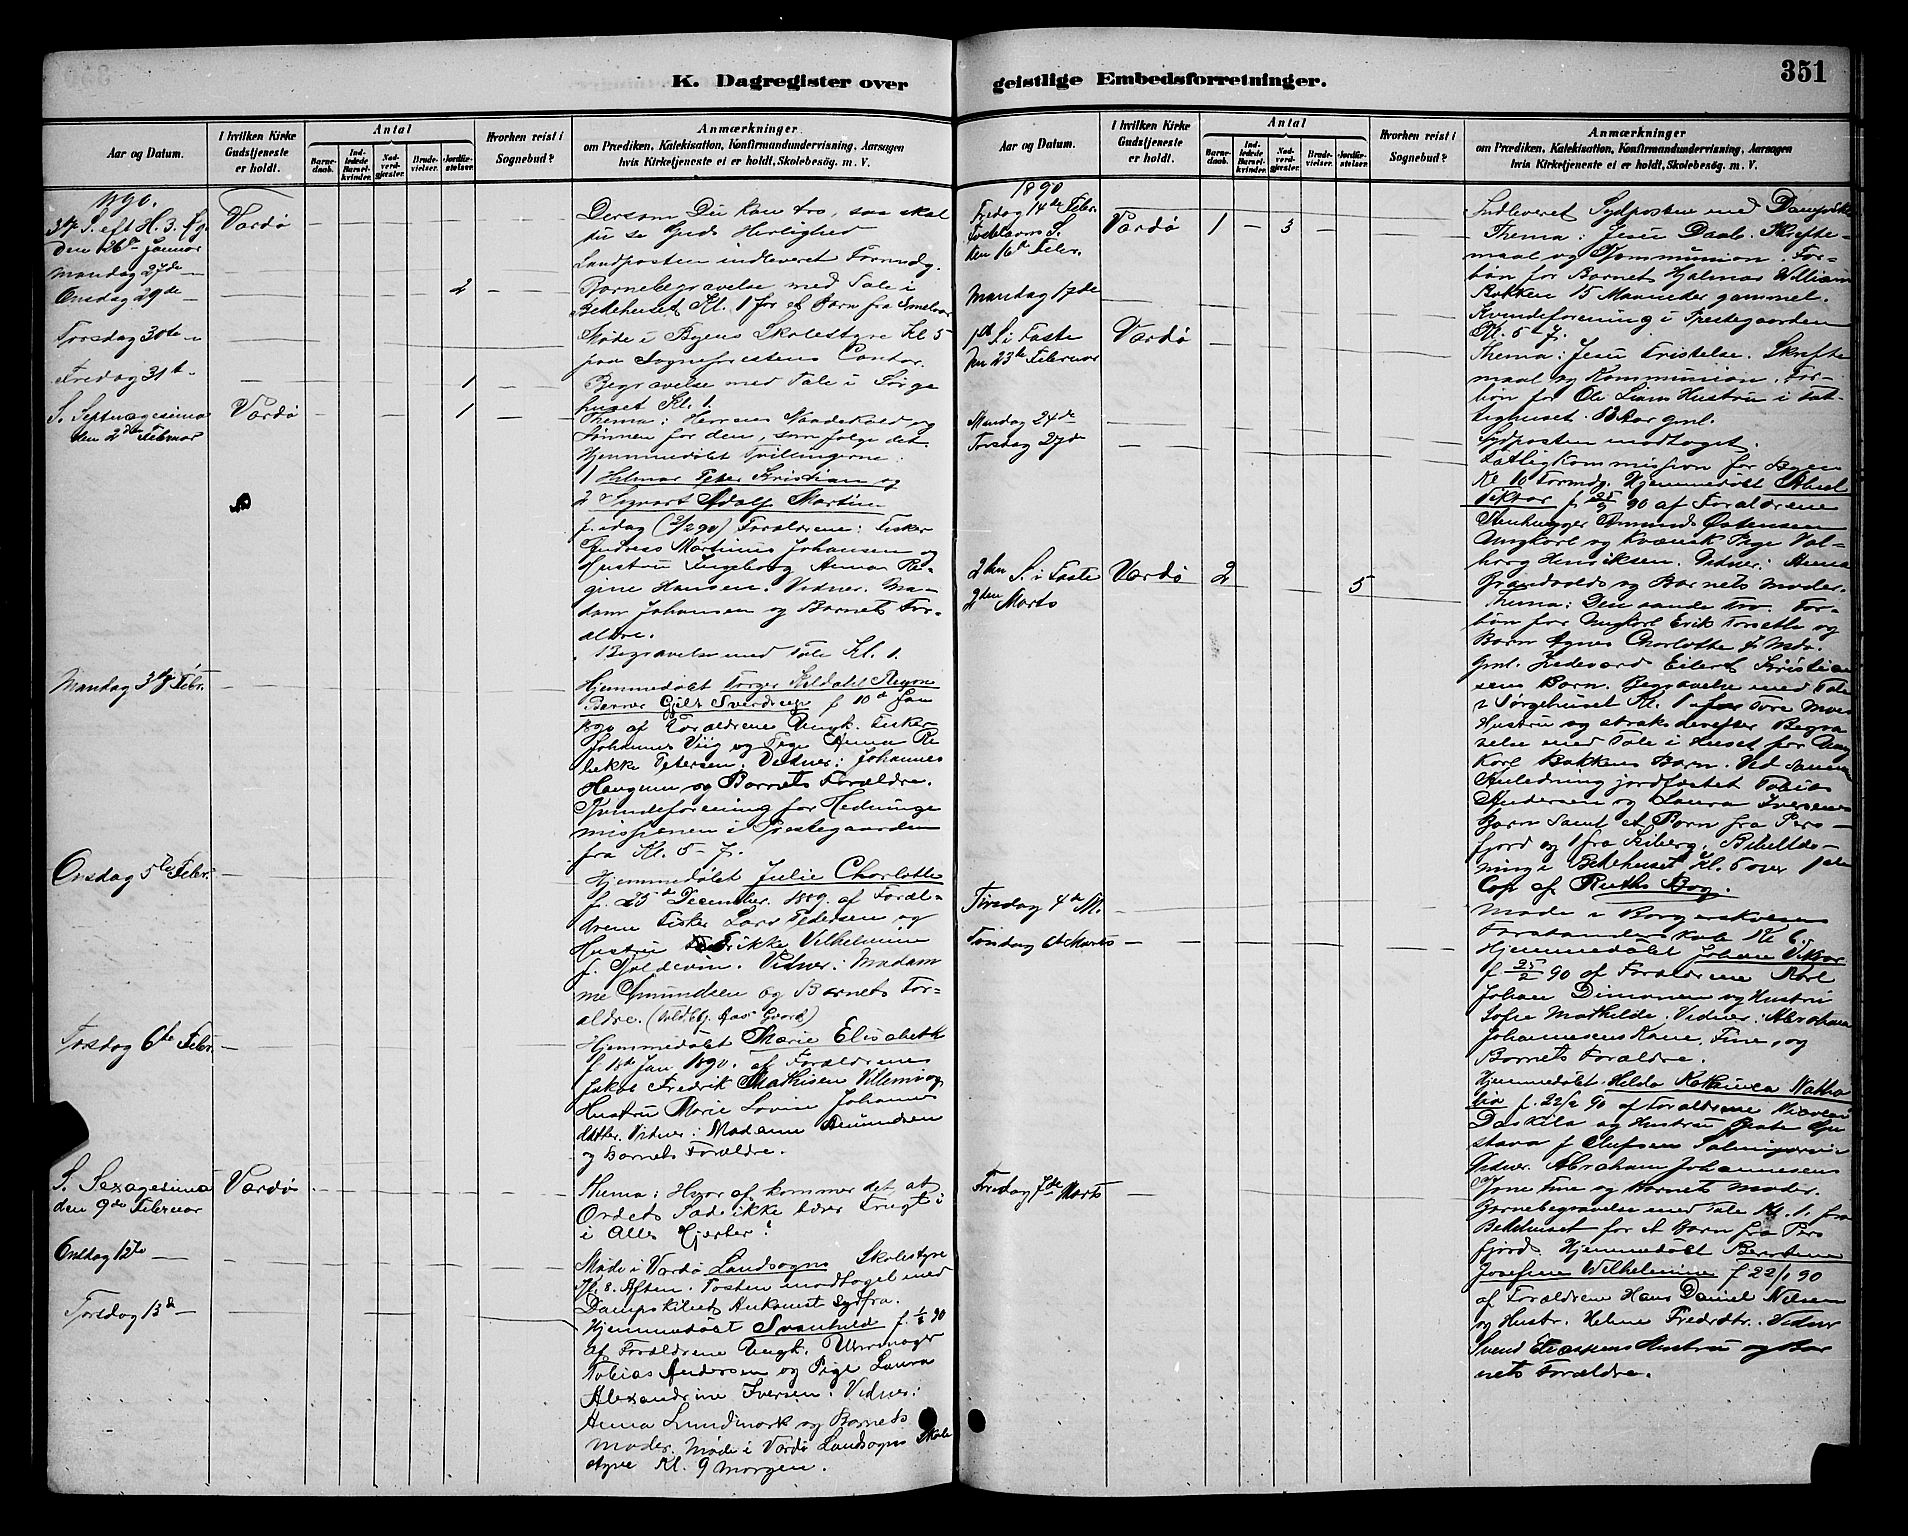 K. Dagregister over
Aar og Datum.
I hvilken Kirke Gudstjeneste er holdt.
Antal
Barne-daab.
Ind-ledede Barsel-kvinder.
Nad-verd-gjæster.
Brude-vielser.
Jordfæ-stelser.
Hvorhen reist i Sognebud?
Anmærkninger
om Prædiken, Katekisation, Konfirmandundervisning, Aarsagen
hvis Kirketjeneste ei er holdt, Skolebesög. m. V.
1890.
S. eft H. 3. K. Vardø
den 26de Januar
Dersom Du kan tro, saa skal
du se Guds Herlighed
Mandag 27de
Landposten indleveret Formdg.
Onsdag 29de 2
Barnebegravelse med Tale i
Bedehuset Kl. 1 for et Barn fra
Torsdag 30te
Møde i Byens Skolestyre Kl 5
paa Sogneprestens Contor.
Fredag 31te 1
Begravelse med Tale i Sørge
huset Kl. 1.
S. Septuagesima Vardø 1
den 2den Februar
Thema: Herrens Naadekald og
Lønnen for dem, som følge det.
Hjemmedøbt Tvillingerne:
1 Halmar Peter Kristian og
2 Sigvart Adolf Martin
f. idag (2/2 90) Forældrene: Fisker
Andreas Martinus Johansen og
Hustru Ingeborg Anna Re-
gine Hansen. Vidner: Ma-
dam Johansen og Barnets For-
ældre.
1 Begravelse med Tale Kl. 1.
Mandag 3die Febr.
Hjemmedøbt Torger Kildahl
Sverdrup f 10de Jan
1890 af Forældrene Ungk. Fisker
Johannes Viig og Pige Anna Re
bekke Petersen. Vidner: Johannes
Haugens og Barnets Forældre.
Kvindeforening for Hedninge
missionen i Prestegaarden
fra Kl. 5-7.
Onsdag 5te Febr.
Hjemmedøbt Julie Charlotte
f. 23de December 1889. af Foræl-
drene Fisker Lars Pedersen og
Hustru Fredrikke Vilhelmine
f. Goldevin. Vidner: Madam
me Amundsen og Barnets For-
ældre.
Torsdag 6te Febr.
Hjemmedøbt Marie Elisabeth
f 18de Jan 1890. af Forældrene
Jakob Fredrik Mathisen og
Hustru Marie Lovise Johannes
datter. Vidner: Madame Amundsen
og Barnets Forældre.
S. Sexagesima Vardø
den 9de Februar
Thema: Hvoraf kommer det at
Ordets Sæd ikke bærer Frugt i
i Alles Hjerter?
Onsdag 12te
Møde i Vardø Landsogns Skolestyre
Kl. 8. Aften. Posten modtaget med
Dampskibets Ankomst sydfra.
Torsdag 13de
Hjemmedøbt Svanhild f. 1/1 90
af Forældrene Ungk. Uhrmager
Tobias Andersen og Pige Laura
Alexandrine Iversen. Vidner:
Anna Lundmark og Barnets
Moder. Møde i Vardø Landsogns Skole
styre Kl. 9 Morgen.
geistlige Embedsforretninger.
351
Aar og Datum.
I hvilken Kirke Gudstjeneste er holdt.
Antal
Barne-daab.
Ind-ledede Barsel-kvinder.
Nad-verd-gjæster.
Brude-vielser.
Jordfæ-stelser.
Hvorhen reist i Sognebud?
Anmærkninger
om Prædiken, Katekisation, Konfirmandundervisning, Aarsagen
hvis Kirketjeneste ei er holdt, Skolebesög. m. V.
1890
Fredag 14de Febr.
Indleveret Sydposten med
Fastelavns S. Vardø 1 3
den 16de Febr.
Thema: Jesu Daab. Skrifte-
maal og Kommunion. For-
bøn for Barnet Hjalmar William
Bakken 15 Maaneder gammel.
Mandag 17de
Kvindeforening i Prestegaarden
Kl. 5-7.
1ste S. i Faste Vardø
den 23de Februar
Thema: Jesu Fristelse. Skrifte
maal og Kommunion. For-
bøn for Ole Hustru i Fat-
tighuset. Aar gml.
Mandag 24de
Sydposten modtaget.
Torsdag 27de
Fattigkommission for Byen
Kl 10 Formdg. Hjemmedøbt
Viktor f. 90 af Forældrene
Stenhugger Amund Østensen
Ungkarl og Kvænsk Pige Val-
borg Henriksen. Vidner: Anna
Brandvolds og Barnets Moder.
2den S. i Faste Vardø 2 5
2den Marts
Thema: Den sande Tro. For-
bøn for Ungkarl Erik Torseth og
Barn Agnes Charlotte
gml. Eilert Kristian
sens Barn. Begravelse med Tale
i Sørgehuset Kl. 1 for Tore
Hustru og straks derefter Begra
velse med Tale i Huset for Ung
karl Bakkens Barn. Ved samme
Anledning jordfæstet Tobias
Andersen og Laura Iversens
Barn samt et Barn fra Pers-
fjord og 1 fra Kiberg. Bibellæs-
ning i Bedehuset Kl. 6 over 1ste
Cap af Ruths Bog.
Tirsdag 4de M.
Møde i Borgerskolens
Forstanderskab Kl 6.
Torsdag 6te Marts
Hjemmedøbt Johan Viktor
f 25/2 90 af Forældrene Karl
Johan Dimonen og Hustru
Sofie Mathilde. Vidner: Abraham
Johannesens Kone, Fine, og
Barnets Forældre.
Hjemmedøbt Hilda Natha
lia f. 22/2 90 af Forældrene
Daskila og Hustru Gu
stava f Olufsen
Vidner. Abraham Johannesens
Kone Fine og Barnets Moder.
Fredag 7de Marts
Barnebegravelse med Tale Kl. 1. fra
Bedehuset for et Barn fra Pers
fjord. Hjemmedøbt
Josefine Wilhelmine f 22/1 90
af Forældrene Hans Daniel Nilsen
og Hustr. Helene Fredrdtr. Vidner
Svend Hustru og Bar
nets Forældre.